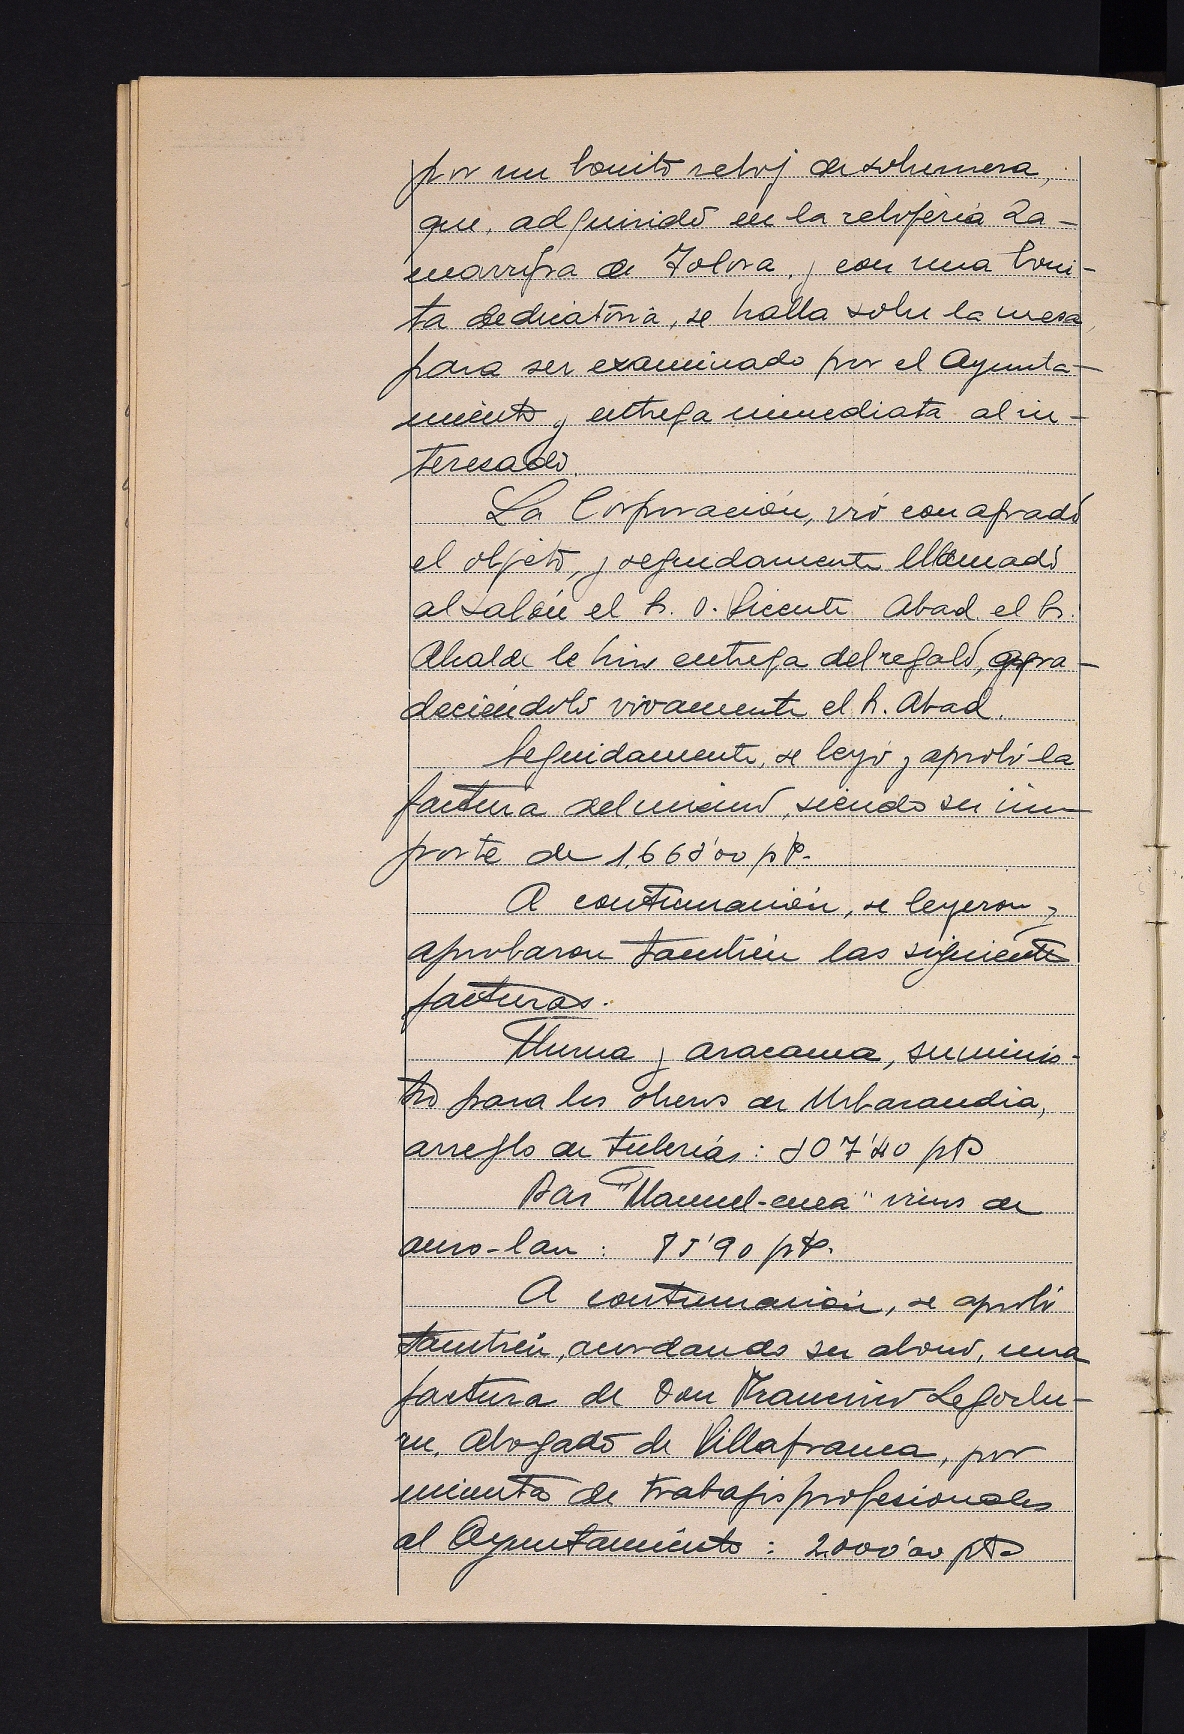 por un bonito reloj de sobremesa,
que, adquirido en la relojeria La-
marrifra de Tolosa, y con una boni-
ta dedicatoria, se halla sobre la mesa,
para ser examinado por el Ayunta-
miento y entrega inmediata al in-
teresado.
La Corporación, vió con agrado
el objeto, y seguidamente llamado
al salón el Sr. D. Vicente Abad el Sr.
Alcalde le hizo entrega del regalo, agra-
deciéndolo vivamente el Sr. Abad.
Seguidamente, se leyó y aprobó la
factura del mismo, siendo su im-
porte de 1,668'00 pts.
A continuación, se leyeron y
aprobaron también las siguientes
facturas.
y Aracama, suminis-
tro para las obras de Urbarandia,
arreglo de tuberías: 807'40 pts
Bar "Manuel-enea" vinos de
auzo-lan: 75'90 pts.
A continuación, se aprobó
también, acordando su abono, una
factura de Don Francisco Legorbu-
ru, Abogado de Villafranca, por
minuta de trabajos profesionales
al Ayuntamiento: 2.000'00 pts